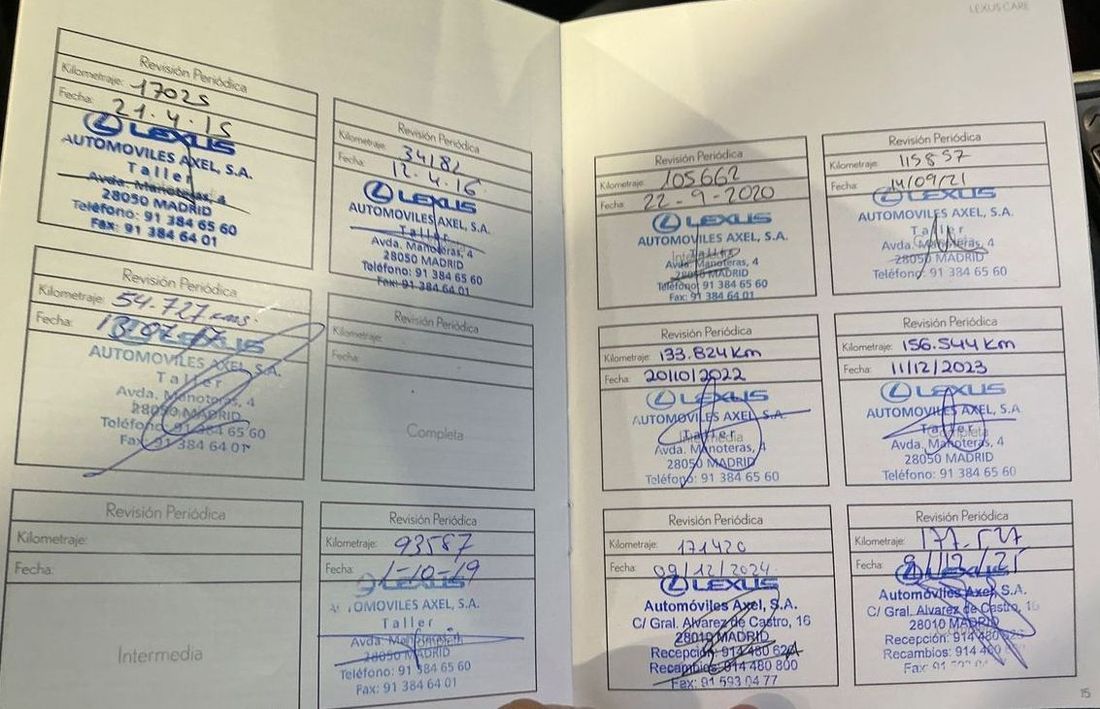 LEXUS CARE
Revisión Periódica
Kilometraje: 17025
Fecha: 21.4.15
LEXUS
AUTOMOVILES AXEL, S.A.
Taller
Avda. Manoteras, 4
28050 MADRID
Teléfono: 91 384 65 60
Fax: 91 384 64 01
Revisión Periódica
Kilometraje: 34182
Fecha: 12.4.16
LEXUS
AUTOMOVILES AXEL, S.A.
Taller
Avda. Manoteras, 4
28050 MADRID
Teléfono: 91 384 65 60
Fax: 91 384 64 01
Revisión Periódica
Kilometraje: 54.727 kms.
Fecha: 13.07.17
LEXUS
AUTOMOVILES AXEL, S.A.
Taller
Avda. Manoteras, 4
28050 MADRID
Teléfono: 91 384 65 60
Fax: 91 384 64 01
Revisión Periódica
Kilometraje:
Fecha:
Completa
Revisión Periódica
Kilometraje:
Fecha:
Intermedia
Revisión Periódica
Kilometraje: 93587
Fecha: 1-10-19
LEXUS
AUTOMOVILES AXEL, S.A.
Taller
Avda. Manoteras, 4
28050 MADRID
Teléfono: 91 384 65 60
Fax: 91 384 64 01
Revisión Periódica
Kilometraje: 105662
Fecha: 22-9-2020
LEXUS
AUTOMOVILES AXEL, S.A.
Taller
Avda. Manoteras, 4
28050 MADRID
Teléfono: 91 384 65 60
Fax: 91 384 64 01
Revisión Periódica
Kilometraje: 115857
Fecha: 14/09/21
LEXUS
AUTOMOVILES AXEL, S.A.
Taller
Avda. Manoteras, 4
28050 MADRID
Teléfono: 91 384 65 60
Revisión Periódica
Kilometraje: 133.824 Km
Fecha: 20/10/2022
LEXUS
AUTOMOVILES AXEL, S.A.
Taller
Avda. Manoteras, 4
28050 MADRID
Teléfono: 91 384 65 60
Revisión Periódica
Kilometraje: 156.544 Km
Fecha: 11/12/2023
LEXUS
AUTOMOVILES AXEL, S.A
Taller
Completa
Avda. Manoteras, 4
28050 MADRID
Teléfono: 91 384 65 60
Revisión Periódica
Kilometraje: 171420
Fecha: 09/12/2024
LEXUS
Automóviles Axel, S.A.
C/ Gral. Alvarez de Castro, 16
28010 MADRID
Recepción: 914 480 624
Recambios: 914 480 800
Fax: 91 593 04 77
Revisión Periódica
Kilometraje: 177.527
Fecha:
LEXUS
Automóviles Axel, S.A.
C/ Gral. Alvarez de Castro, 16
28010 MADRID
Recepción: 914 480
Recambios: 914
Fax: 91
15